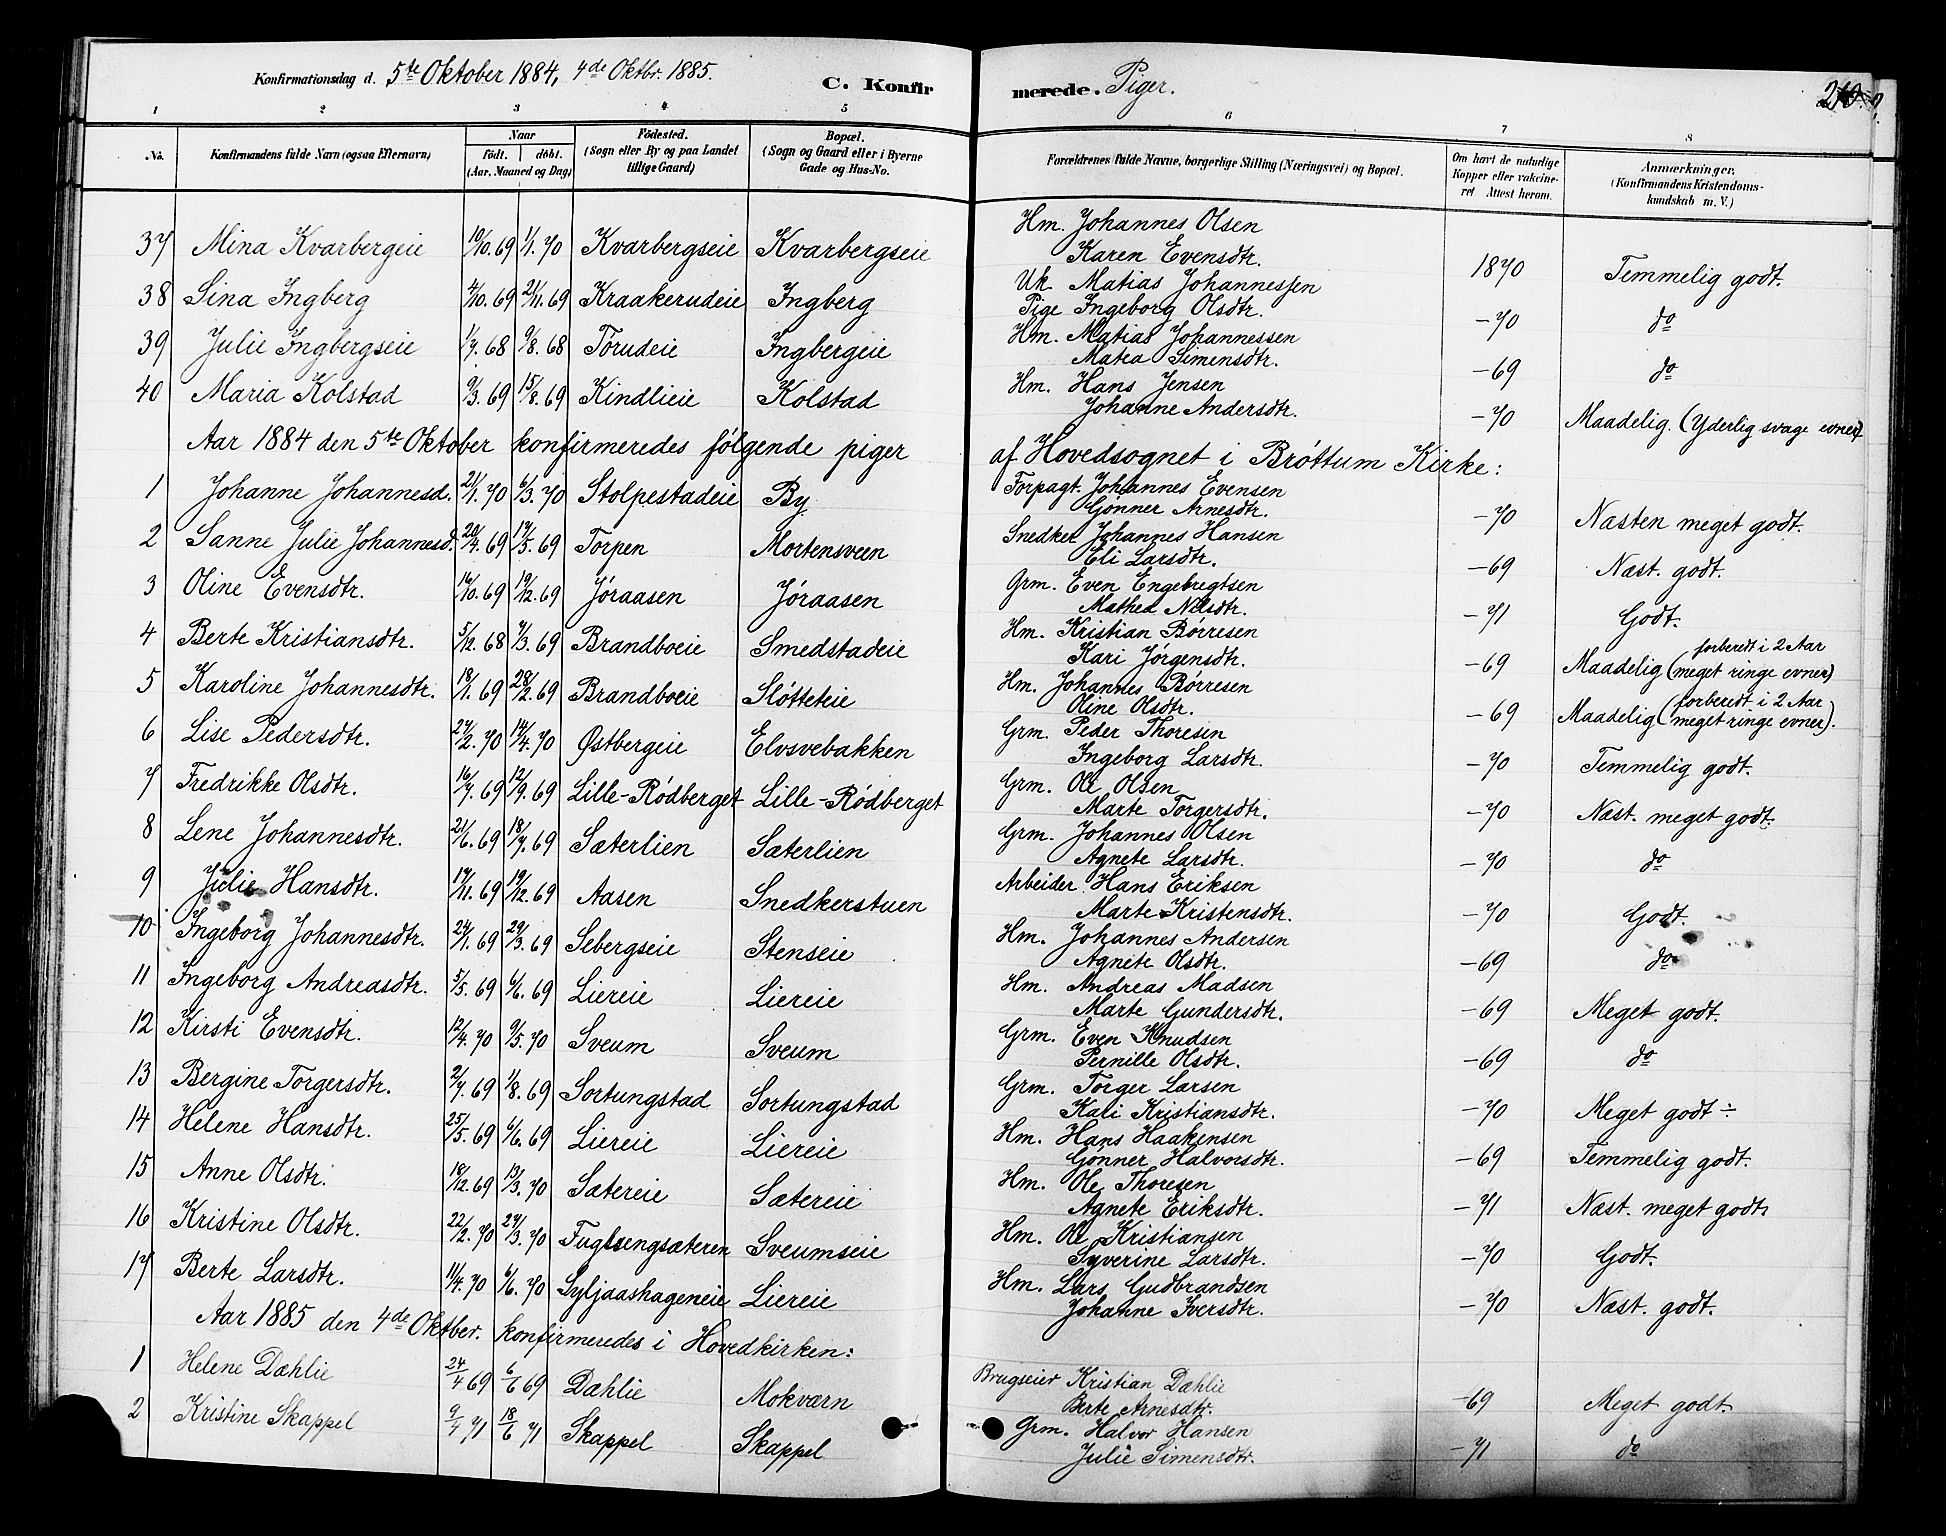 Konfirmationsdag d. 5te Oktober 1884, 4de Oktbr. 1885. C. Konfirmerede. Piger.
1 2 3 4 5 6 7 8
No. Konfirmandens fulde Navn (ogsaa Efternavn) Naar födt. döbt. (Aar, Maaned og Dag) Födested. (Sogn eller By og paa Landet tillige Gaard) Bopæl. (Sogn og Gaard eller i Byerne Gade og Hus-No. Forældrenes fulde Navne, borgerlige Stilling (Næringsvei) og Bopæl. Om havt de naturlige Kopper eller vakcineret Attest herom. Anmærkninger. (Konfirmandens Kristendomskundskab m. V.)
37 Mina Kvarbergeie 19/10 69 1/1. 70 Kvarbergseie Kvarbergseie Hm. Johannes Olsen Karen Evensdtr. 1870 Temmelig godt.
38 Sina Ingberg 4/10. 69 21/11. 69 Kraakerudeie Ingberg Uk Matias Johannessen Pige Ingeborg Olsdtr. -70 do
39 Julie Ingbergseie 1/7. 68 9/8. 68 Torudeie Ingbergeie Hm. Matias Johannessen Matea Simensdtr. -69 do
40 Maria Kolstad 9/3. 69 15/8. 69 Kindlieie Kolstad Hm. Hans Jensen Johanne Andersdtr. -70 Maadelig. (Yderlig svage evner)
Aar 1884 den 5te Oktober konfirmeredes følgende piger af Hovedsognet i Brøttum Kirke:
1 Johanne Johannesd. 21/1. 70 6/3. 70 Stolpestadeie By Forpagt. Johannes Evensen Gønner Arnesdtr. -70 Næsten meget godt.
2 Sanne Julie Johannesd. 20/4. 69 17/5. 69 Torpen Mortensveen Snedker Johannes Hansen Eli Larsdtr. -69 Næst. godt.
3 Oline Evensdtr. 16/10. 69 19/12. 69 Jøraasen Jøraasen Grm. Even Engebregtsen Mathea Nilsdtr. -71 Godt.
4 Berte Kristiansdtr. 5/12. 68 7/3. 69 Brandboeie Smedstadeie Hm. Kristian Børresen Kari Jørgensdtr. -69 Maadelig (forberedt i 2 Aar meget ringe evner)
5 Karoline Johannesdtr. 18/1. 69 28/2. 69 Brandboeie Slotteteie Hm. Johannes Børresen Oline Olsdtr. -69 Maadelig (forberedt i 2 Aar meget ringe evner).
6 Lise Pedersdtr. 27/2. 70 14/4. 70 Østbergeie Elvsvebakken Grm. Peder Thoresen Ingeborg Larsdtr. -70 Temmelig godt.
7 Fredrikke Olsdtr. 16/7. 69 12/9. 69 Lille-Rødberget Lille-Rødberget Grm. Ole Olsen Marte Torgersdtr. -70 Næst. meget godt.
8 Lene Johannesdtr. 21/6. 69 18/7. 69 Sæterlien Sæterlien Grm. Johannes Olsen Agnete Larsdtr. -70 do
9 Julie Hansdtr. 17/11. 69 19/12. 69 Aasen Snedkerstuen Arbeider Hans Eriksen Marte Kristensdtr. -70 Godt.
10 Ingeborg Johannesdtr. 24/1. 69 29/3. 69 Sebergseie Stenseie Hm. Johannes Andersen Agnete Olsdtr. -69 do
11 Ingeborg Andreasdtr. 5/5. 69 6/6. 69 Liereie Liereie Hm. Andreas Madsen Marte Gundersdtr. -69 Meget godt.
12 Kirsti Evensdtr. 12/4. 70 9/5. 70 Sveum Sveum Grm. Even Knudsen Pernille Olsdtr. -69 do
13 Bergine Torgersdtr. 2/7. 69 1/8. 69 Sortungstad Sortungstad Grm. Torger Larsen Kali Kristiansdtr. -70 Meget godt ÷
14 Helene Hansdtr. 25/5. 69 6/6. 69 Liereie Liereie Hm. Hans Haakensen Gønner Halvorsdtr. -69 Temmelig godt.
15 Anne Olsdtr. 18/12. 69 13/3. 70 Sætereie Sætereie Hm. Ole Thoresen Agnete Eriksdtr. -71 Næst. meget godt
16 Kristine Olsdtr. 22/2. 70 27/3. 70 Fuglsengsæteren Sveumseie Hm. Ole Kristiansen Syverine Larsdtr. -70 Godt.
17 Berte Larsdtr. 11/4. 70 6/6. 70 Syljaashageneie Liereie Hm. Lars Gudbrandsen Johanne Iversdtr. -70 Næst. godt.
Aar 1885 den 4de Oktber. konfirmeredes i Hovedkirken:
1 Helene Dæhlie 24/4 69 6/6 69 Dæhlie Mokværn Brugseier Kristian Dæhlie Berte Arnesdtr. -69 Meget godt.
2 Kristine Skappel 9/4 71 18/6 71 Skappel Skappel Grm. Halvor Hansen Julie Simensdtr. -71 do